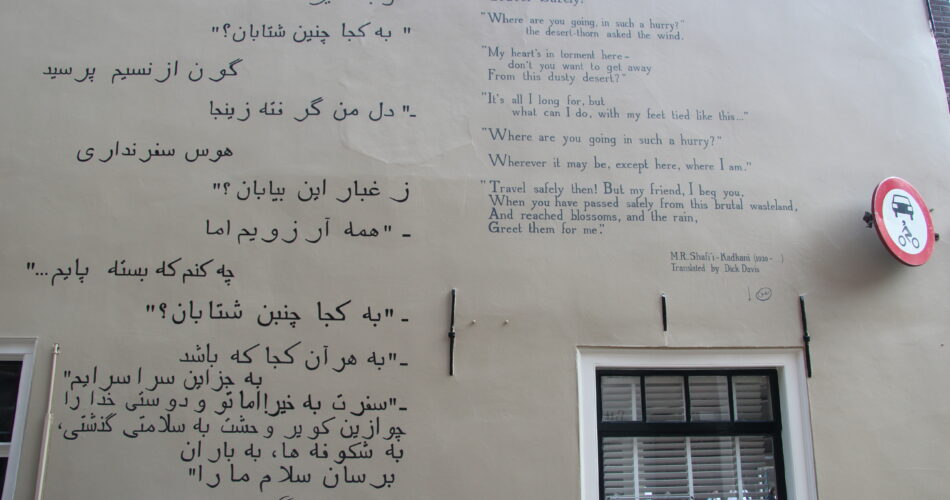 " به کجا چنین شتابان؟"
گون از نسیم پرسید
ـ" دل من گر فته زینجا
هوس سفرنداری
ز غبار این بیابان؟"
ـ "همه آر زویم اما
چه کنم که بسته پایم..."
ـ "به کجا چنبن شتابان؟"
ـ"به هر آن کجا که باشد
به جزاین سرا سرایم"
ـ"سفرت به خیر!اما تو و دوستی خدا را
چوازین کویر وحشت به سلامتی گذشتی،
به شکوفه ها، به باران
برسان سلام مارا"
"Where are you going, in such a hurry?"
the desert-thorn asked the wind.
"My heart's in torment here -
don't you want to get away
From this dusty desert?"
"It's all I long for, but
what can I do, with my feet tied like this..."
"Where are you going in such a hurry?"
Wherever it may be, except here, where I am."
"Travel safely then! But my friend, I beg you,
When you have passed safely from this brutal wasteland,
And reached blossoms, and the rain,
Greet them for me."
M.R. Shafi'i-Kadkani (1939- )
Translated by Dick Davis